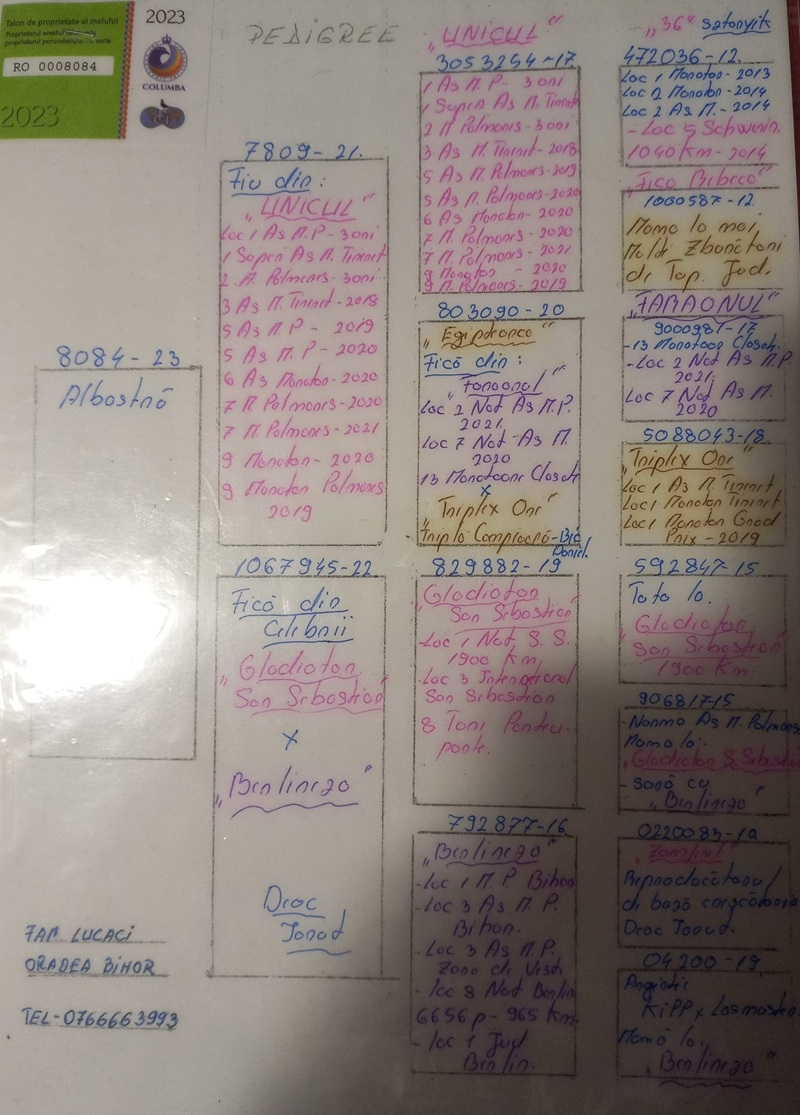 Talon de proprietate al inelului
RO 0008084
2023
2023
COLUMBA
PEDIGREE
8084-23
Albastră
FAM LUCACI
ORADEA BIHOR
TEL-0766663993
7809-21.
Fiu din:
"UNICUL"
Loc 1 As M.P - 3 ani
1 Supra As M. Tineret
2. M. Palmares - 3 ani
3 As M. Tineret - 2018
5 As M P - 2019
5 As M. P - 2020
6 As Maraton - 2020
7 M. Palmares - 2020
7 M. Palmares - 2021
9 Maraton - 2020
9 Maraton Palmares
2019
1067945-22
Fică din
Celebrii
"Gladiator
San Sebastian"
x
"Berlineza"
Drac
Ionut
"UNICUL"
3053254-17.
1 As M P - 3 ani
1 Supra As M. Tineret
2 M. Palmares - 3 ani
3 As M. Tineret - 2018
5 As M. Palmares - 2019
5 As M. Palmares - 2020
6 As Maraton - 2020
7 M. Palmares - 2020
7 M. Palmares - 2021
9 Maraton - 2020
9 M. Palmares - 2019
803090-20
"Egipteanca"
Fică din:
"Faraonul"
Loc 2 Nat As M.P.
2021.
Loc 7 Nat As M.
2020
13 Maratoane Clasat
x
"Triplex One"
Daniel.
829882-19
"Gladiator
San Sebastian"
-Loc 1 Nat. S. S.
1900 Km,
-Loc 3 International
San Sebastian
8 Tari Pentru-
ponte.
792877-16
"Berlineza"
-Loc 1 M. P. Bihor
-Loc 3 As M P.
Bihor.
-Loc 3 As M.P.
Zona de Vest
- loc 8 Nat Berlin
6656 p - 965 Km.
- loc 1 Jud
Berlin.
"36" Satanyik
472036-12.
Loc 1 Maraton - 2013
Loc 2 Maraton - 2014
Loc 2 As M. - 2014
- Loc 5 Schwerin.
1040 Km - 2014
1000587-12
Mama la mai
Multi Zburători
de Top. Jud.
"FARAONUL"
9000987-17
-13 Maratoane Clasat.
-Loc 2 Nat As M.P.
2021.
Loc 7 Nat As M.
2020
5088043-18
"Triplex One"
Loc 1 As M Tineret
Loc 1 Maraton Tineret
Loc 1 Maraton Grand
Prix - 2019
592847-15
Tata la.
"Gladiator
San Sebastian
1900 Km.
906817-15
Mama la:
"Gladiator S. Sebastian
- Soră cu
"Berlineza"
Reproducătorul
de bază
Drac Ionut.
04200-19.
Mamă la.
"Berlineza"